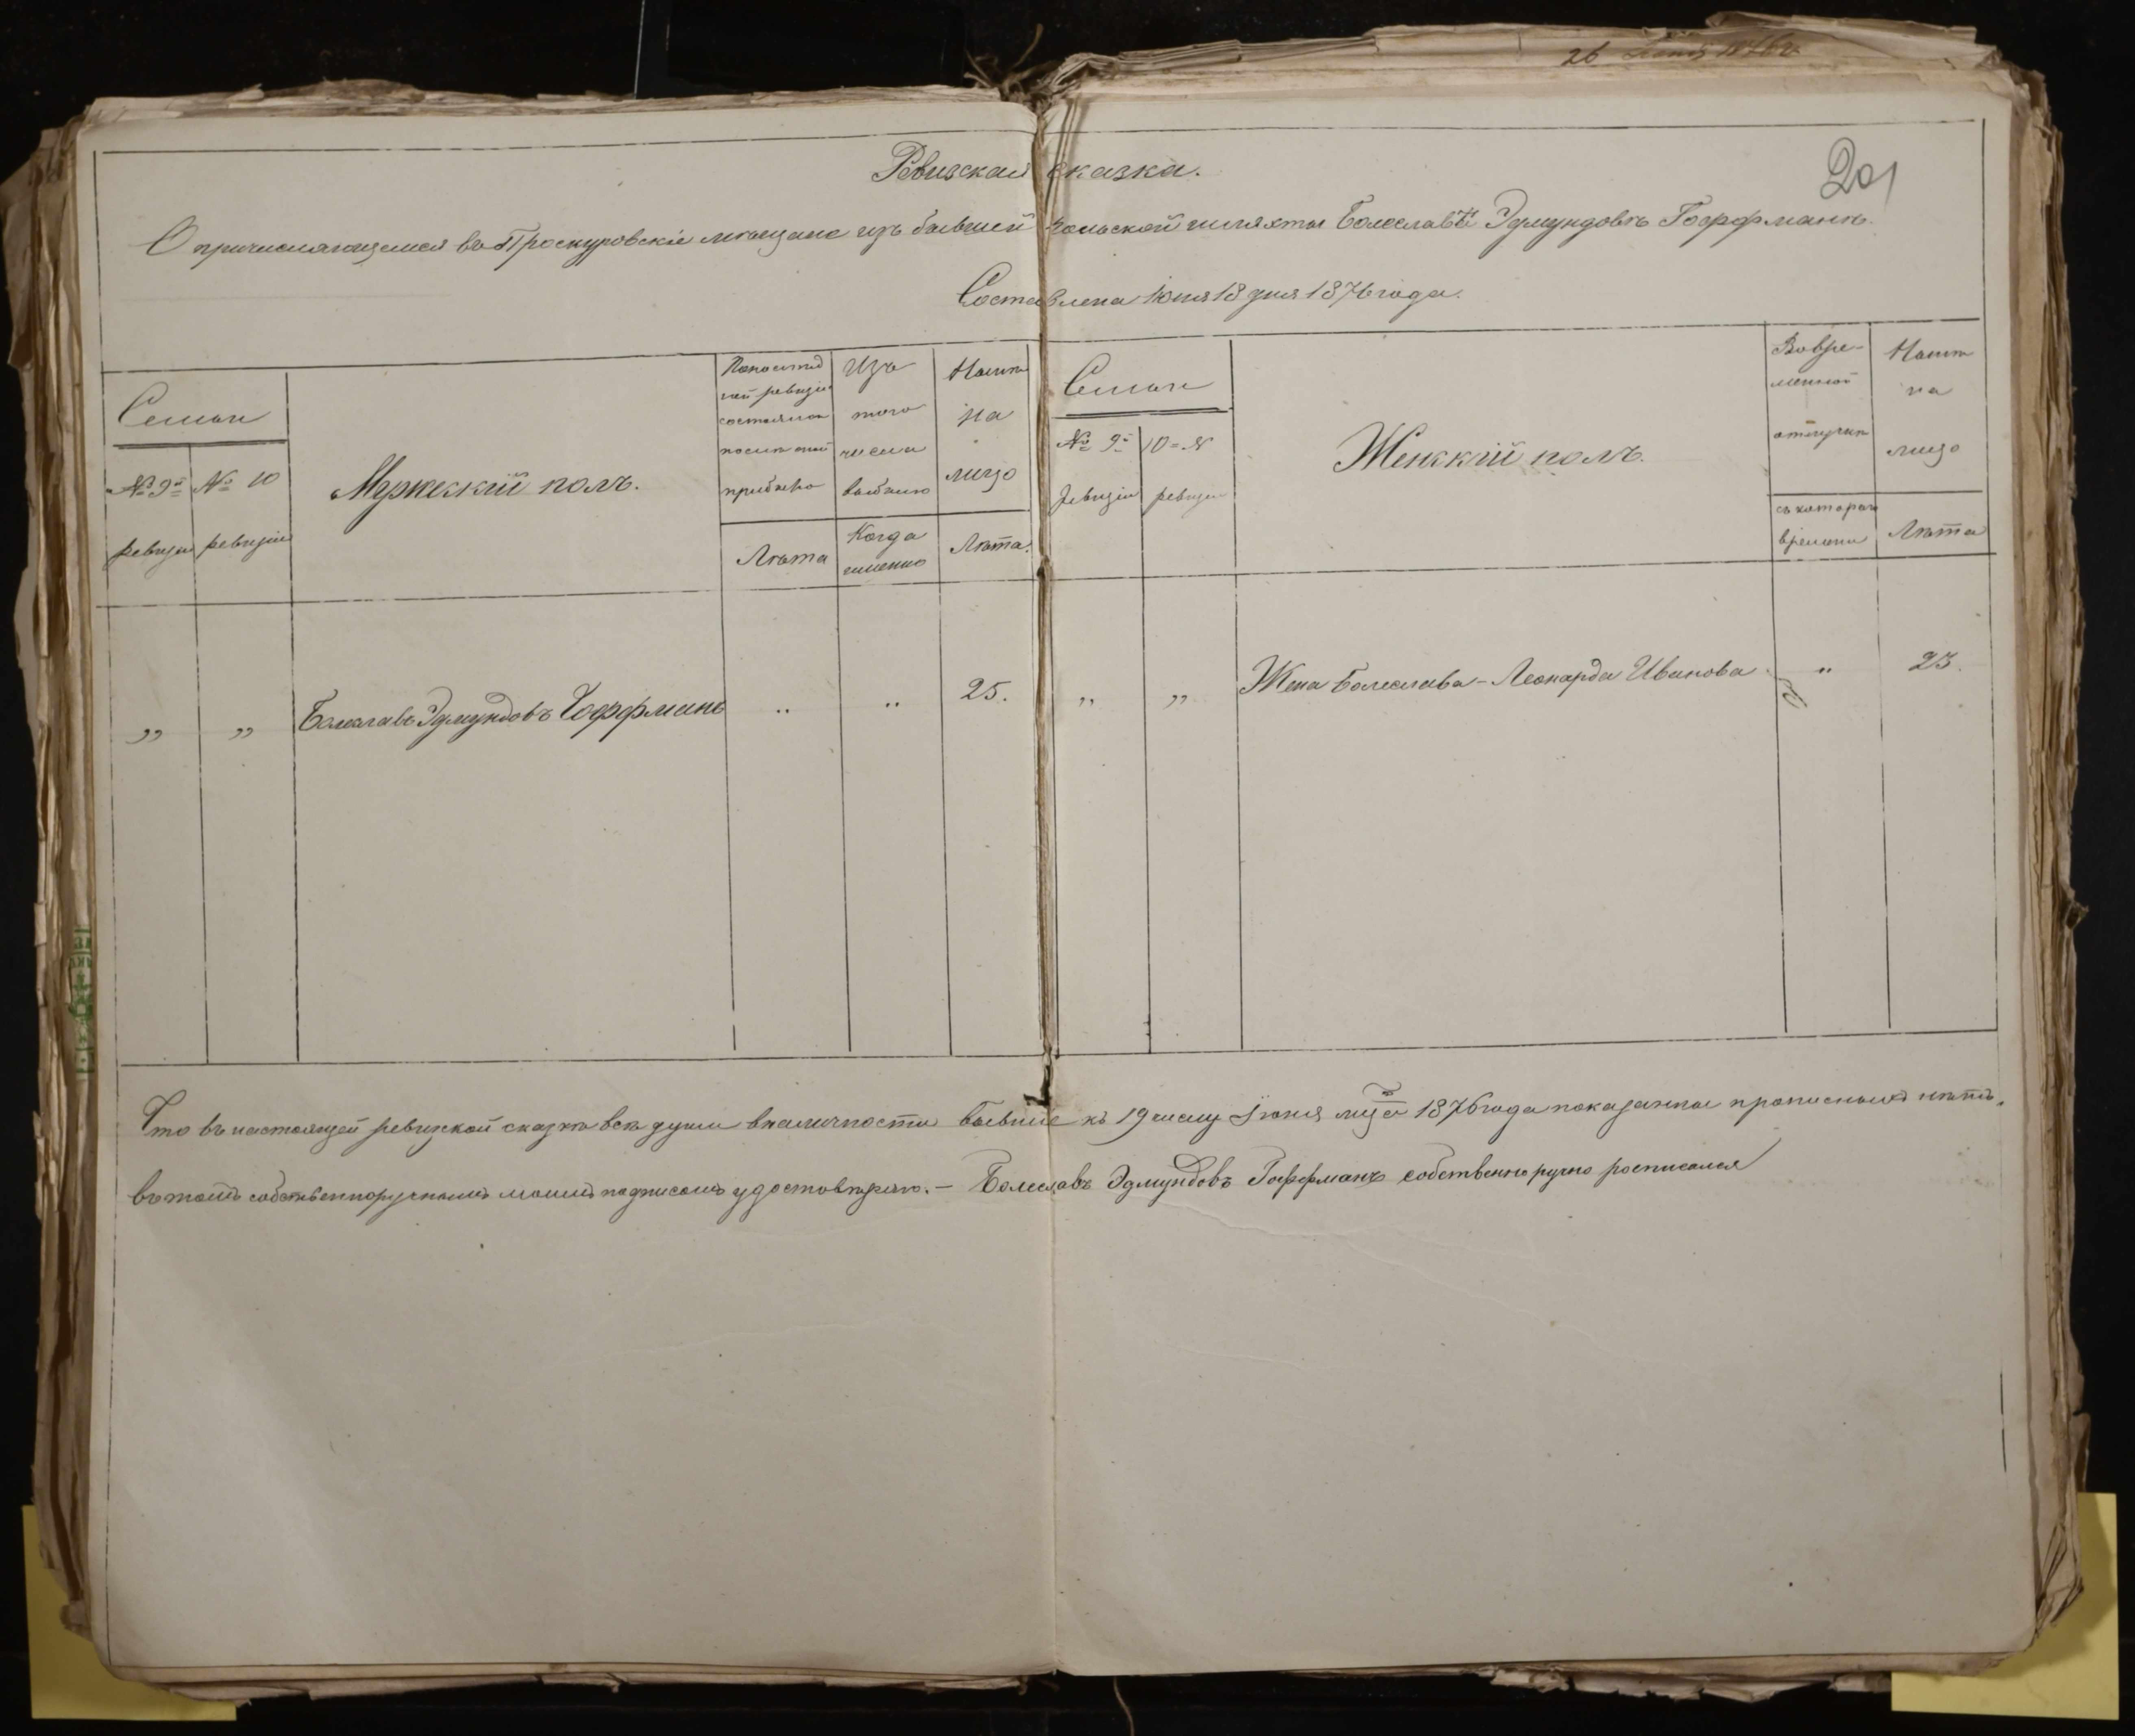 26 1876 г
201
Ревизская сказка.
О причисляющемся въ Проскуровскіе мѣщане изъ бывшей польской шляхты Болеславѣ Эдмундовѣ Гоффманѣ.
Составлена Іюня 18 дня 1876 года.
Семьи
№ 9й ревизіи
№ 10 ревизіи
Мужескій полъ.
прибыло
Лѣта
Изъ того числа выбыло
Когда именно
Нынѣ на лицо
Лѣта.
Семьи
№ 9й ревизіи
10й № ревизіи
Женскій полъ.
Во временной отлучкѣ
съ котораго времени
Нынѣ на лицо
Лѣта
„ „ Болеславъ Эдмундовъ Гоффманъ „ „ 25. „ „ Жена Болеслава - Леонарда Иванова „ 23.
Что въ настоящей ревизской сказкѣ всѣ души вналичности бывшіе къ 19 числу Іюня 1876 года показанные прописныхъ нѣтъ,
въ томъ собственноручнымъ моимъ подписомъ удостовѣряю. — Болеславъ Эдмундовъ Гоффманъ собственноручно росписался